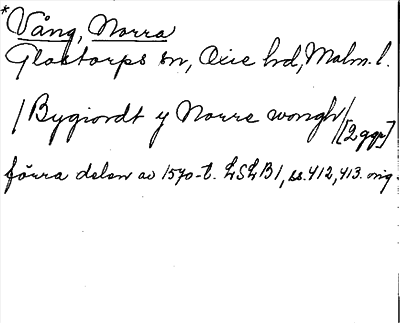 *Vång, Norra
Glostorps sn, Oxie hd, Malm. l.
/Bygiordt y Norre wongh/ [2 ggr]
förra delen av 1570-t. LSLB1, ss. 412, 413. orig.